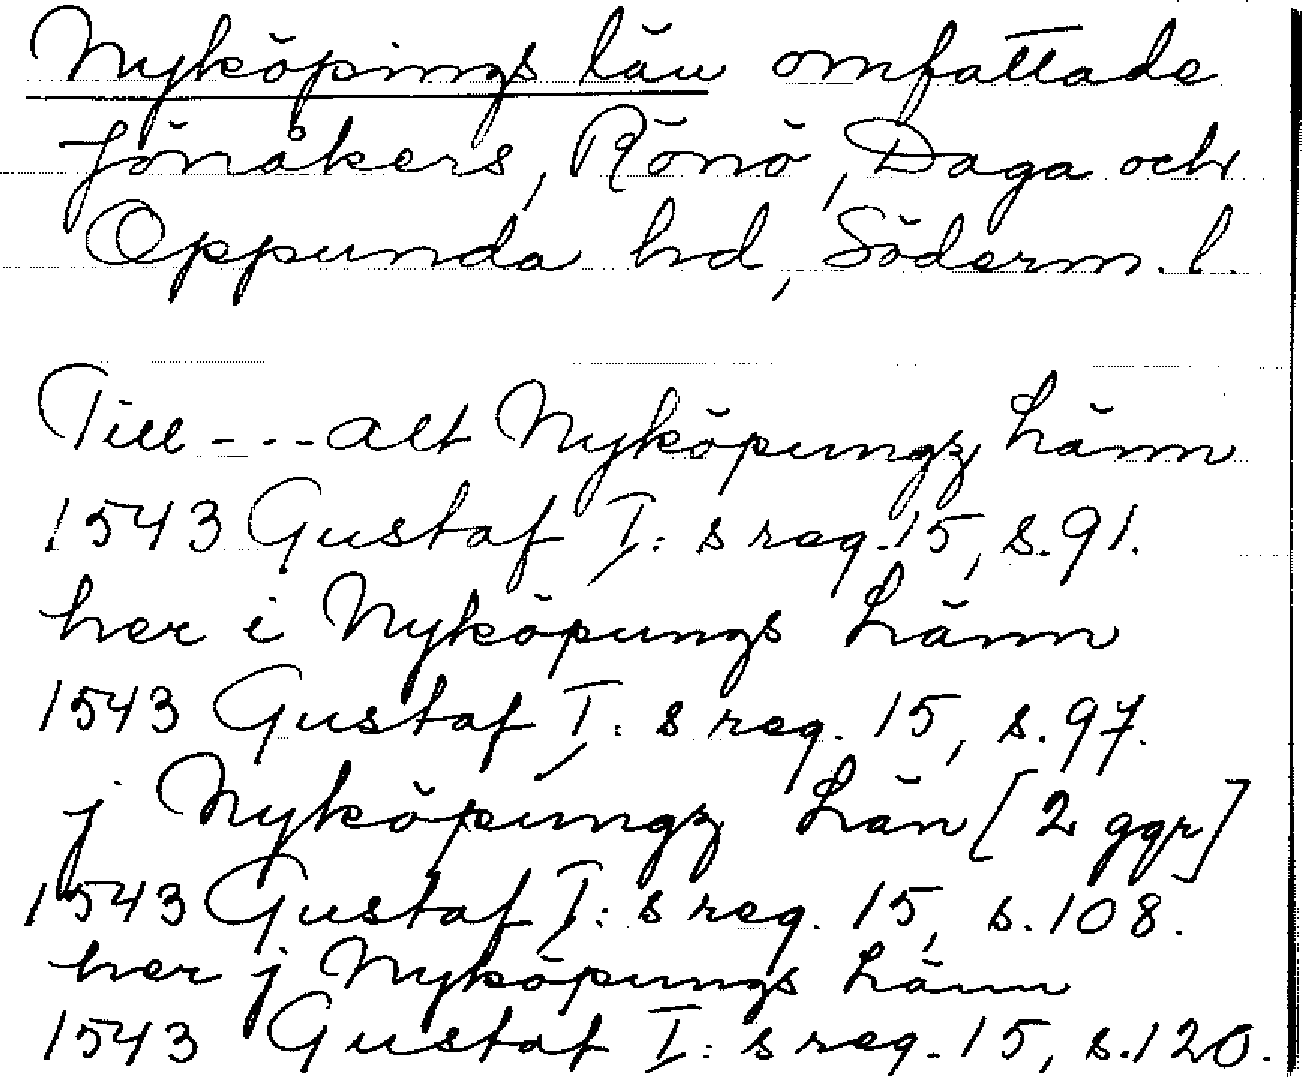 Nyköpings län omfattade
Jönåkers, Rönö, Daga och
Oppunda hd, Söderm. l.
Till - - - alt Nyköpungz Länn
1543 Gustaf I:s reg. 15, s. 91.
her i Nyköpungs Länn
1543 Gustaf I:s reg. 15, s. 97.
j Nyköpungz Län [2 ggr]
1543 Gustaf I:s reg. 15, s. 108.
her j Nyköpungs Länn
1543 Gustaf I:s reg. 15, s. 120.